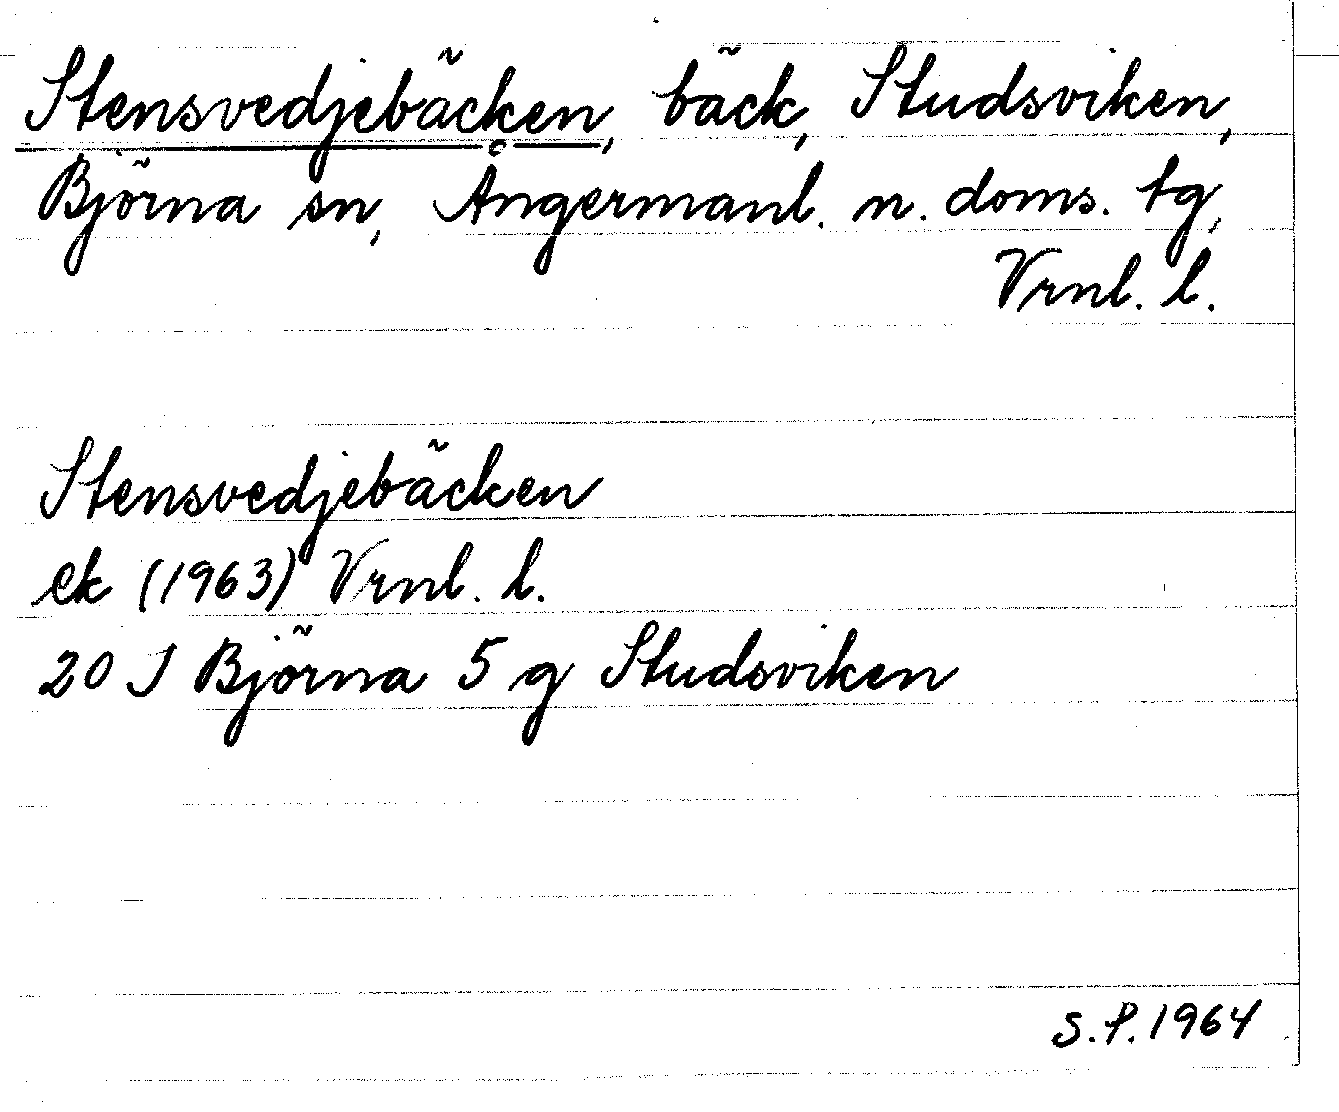 Stensvedjebäcken, bäck, Studsviken,
Björna sn, Ångermanl. n. doms. tg,
Vrnl. l.
Stensvedjebäcken
ek (1963) Vrnl. l.
20 J Björna 5 g Studsviken
S.P. 1964